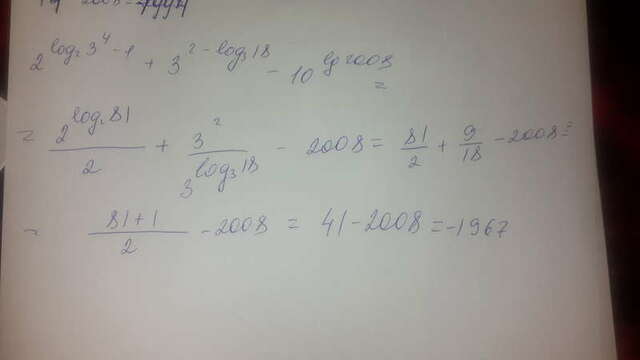 2^{log₂3⁴-1} + 3^{2-log₃18} - 10^{lg2008} =
= 2^{log₂81}/2 + 3²/3^{log₃18} - 2008 = 81/2 + 9/18 - 2008 =
= (81+1)/2 - 2008 = 41 - 2008 = -1967